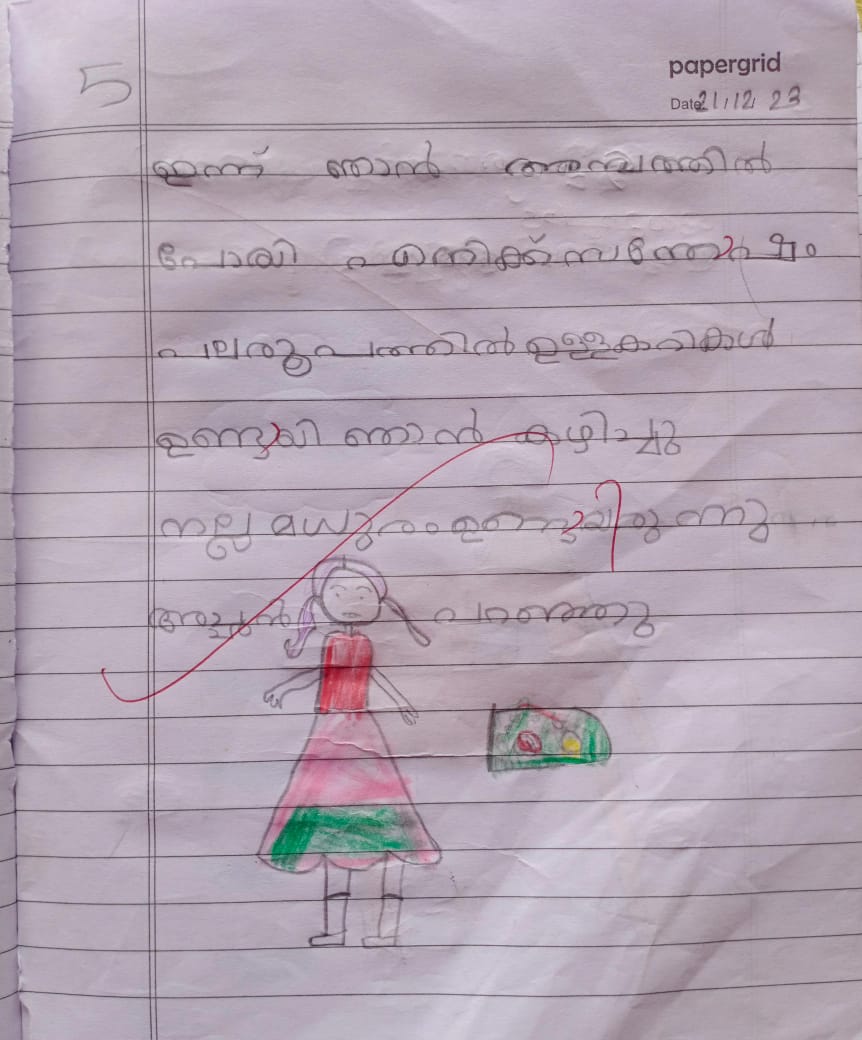 5
papergrid
Date 21/12/23
ഇന്ന് ഞാൻ അമ്പലത്തിൽ
പോയി എനിക്ക് സന്തോഷം
പലരൂപത്തിൽ ഉള്ള കറികൾ
ഉണ്ടായി ഞാൻ കഴിച്ചു
നല്ല മധുരം ഉണ്ടായിരുന്നു
അച്ഛൻ പറഞ്ഞു